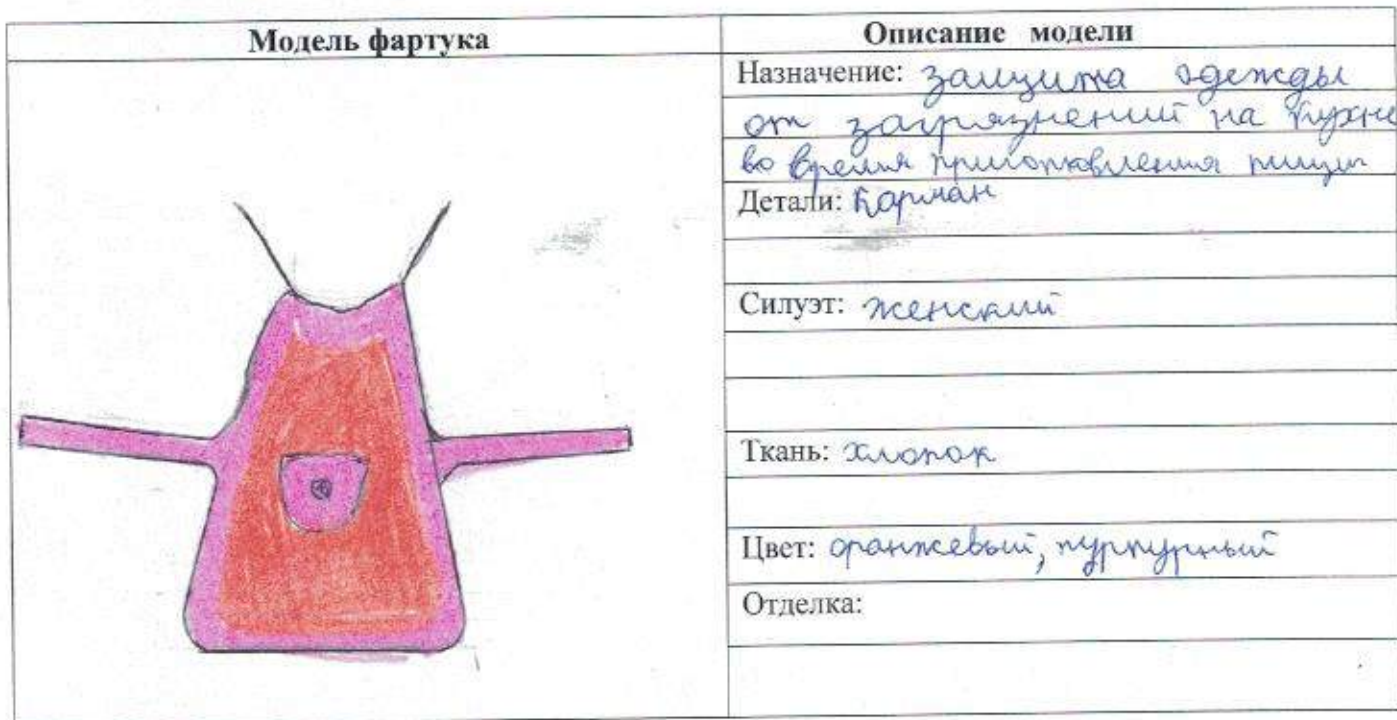 Модель фартука
Описание модели
Назначение: защита одежды
от загрязнений на кухне
во время приготовления пищи
Детали: Карман
Силуэт: женский
Ткань: хлопок
Цвет: оранжевый, пурпурный
Отделка: